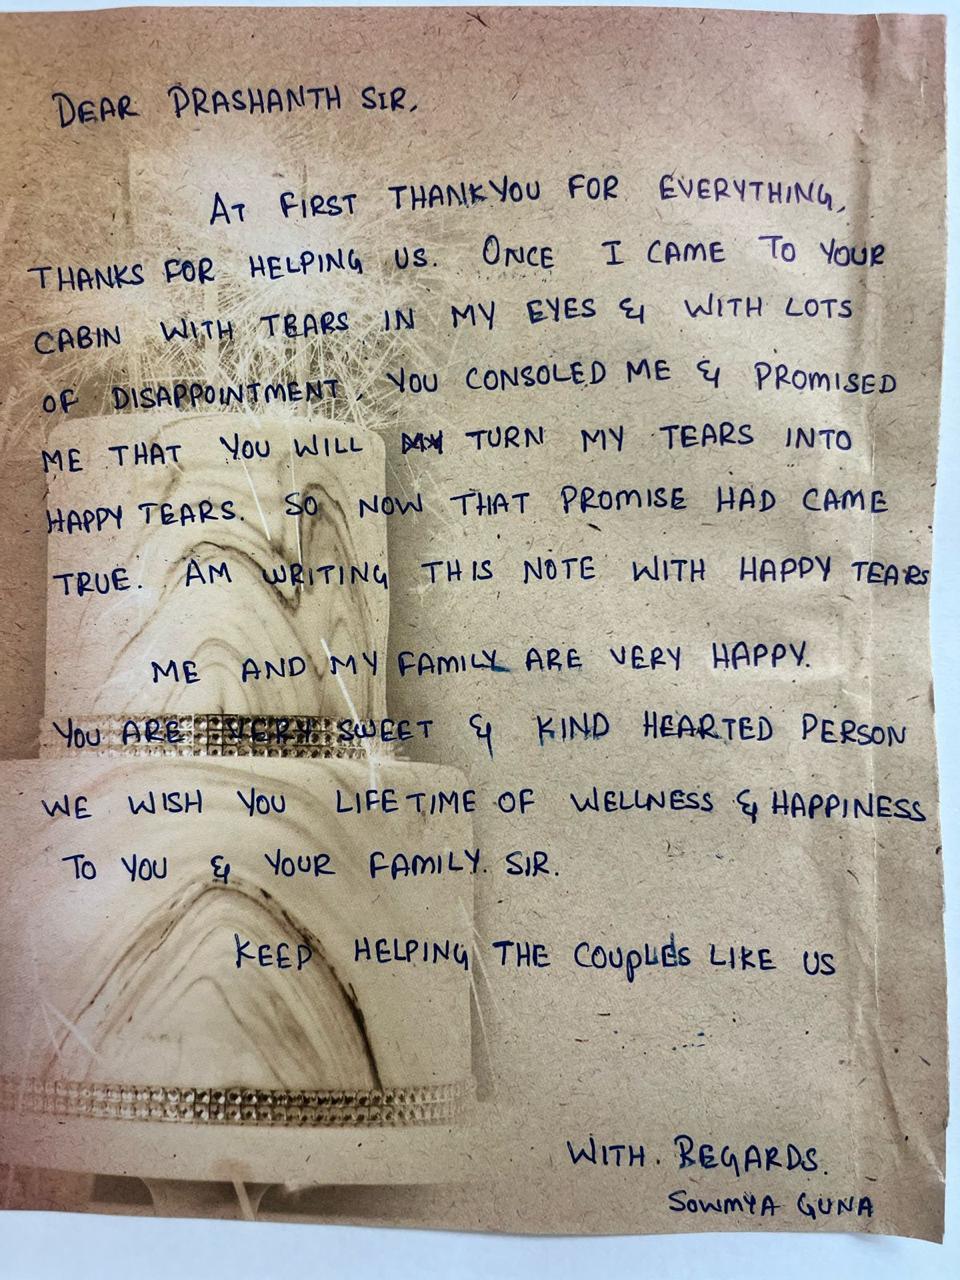 DEAR PRASHANTH SIR,
AT FIRST THANKYOU FOR EVERYTHING,
THANKS FOR HELPING US. ONCE I CAME TO YOUR
CABIN WITH TEARS IN MY EYES & WITH LOTS
OF DISAPPOINTMENT, YOU CONSOLED ME & PROMISED
ME THAT YOU WILL TURN MY TEARS INTO
HAPPY TEARS. SO NOW THAT PROMISE HAD CAME
TRUE. AM WRITING THIS NOTE WITH HAPPY TEARS
ME AND MY FAMILY ARE VERY HAPPY.
YOU ARE VERY SWEET & KIND HEARTED PERSON
WE WISH YOU LIFETIME OF WELLNESS & HAPPINESS
TO YOU & YOUR FAMILY. SIR.
KEEP HELPING THE COUPLES LIKE US
WITH. REGARDS.
SOWMYA GUNA